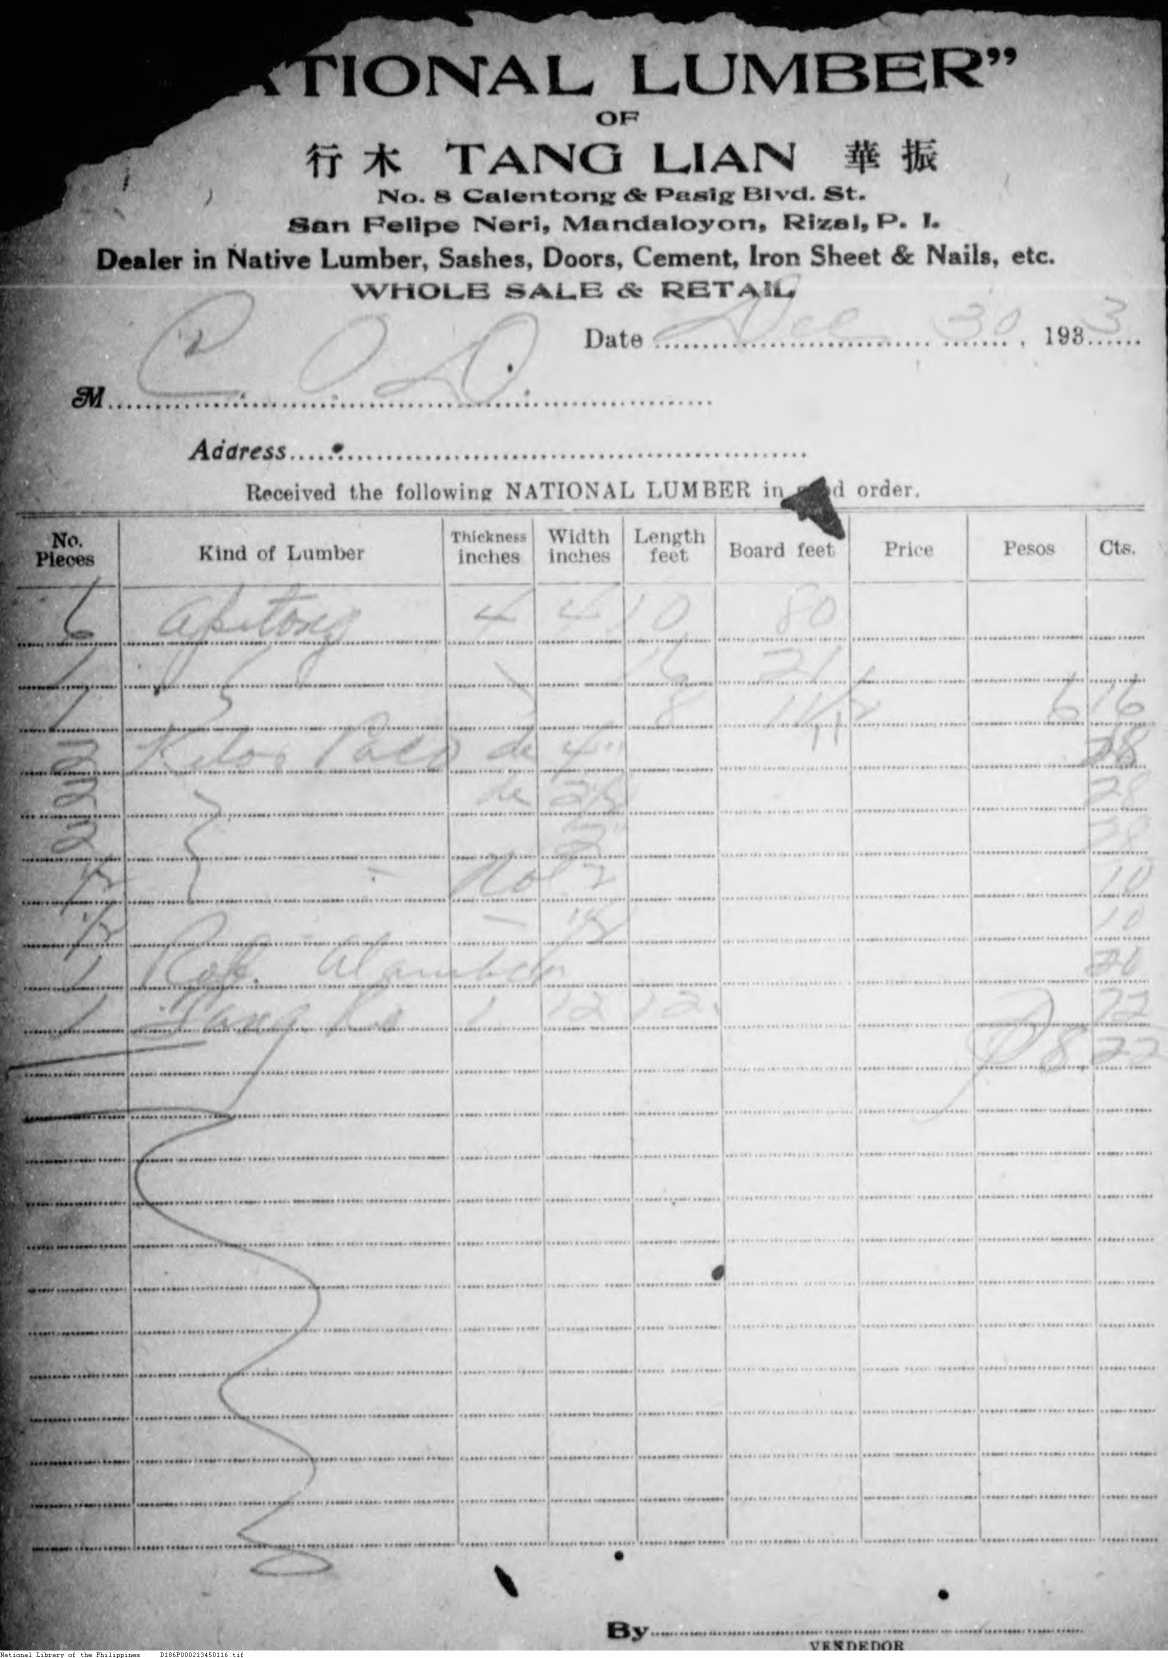 TIONAL LUMBER”
OF
行木 TANG LIAN 華振
No. 8 Calentong & Pasig Blvd. St.
San Felipe Neri, Mandaloyon, Rizal, P. I.
Dealer in Native Lumber, Sashes, Doors, Cement, Iron Sheet & Nails, etc.
WHOLE SALE & RETAIL
Date Dec 30, 1933
M C. O. D.
Address
Received the following NATIONAL LUMBER in order.
No. Pieces Kind of Lumber Thickness inches Width inches Length feet Board feet Price Pesos Cts.
6 Apitong 4 4 10 80
1 16
1 8 6 16
2 Kilos Paco de 4" 28
2 de 28
2 2" 28
1/2 No 2 10
1/2 10
1 20
1 1 12 12 72
P 8 22
By
VENDEDOR
National Library of the Philippines D186P000213450116.tif